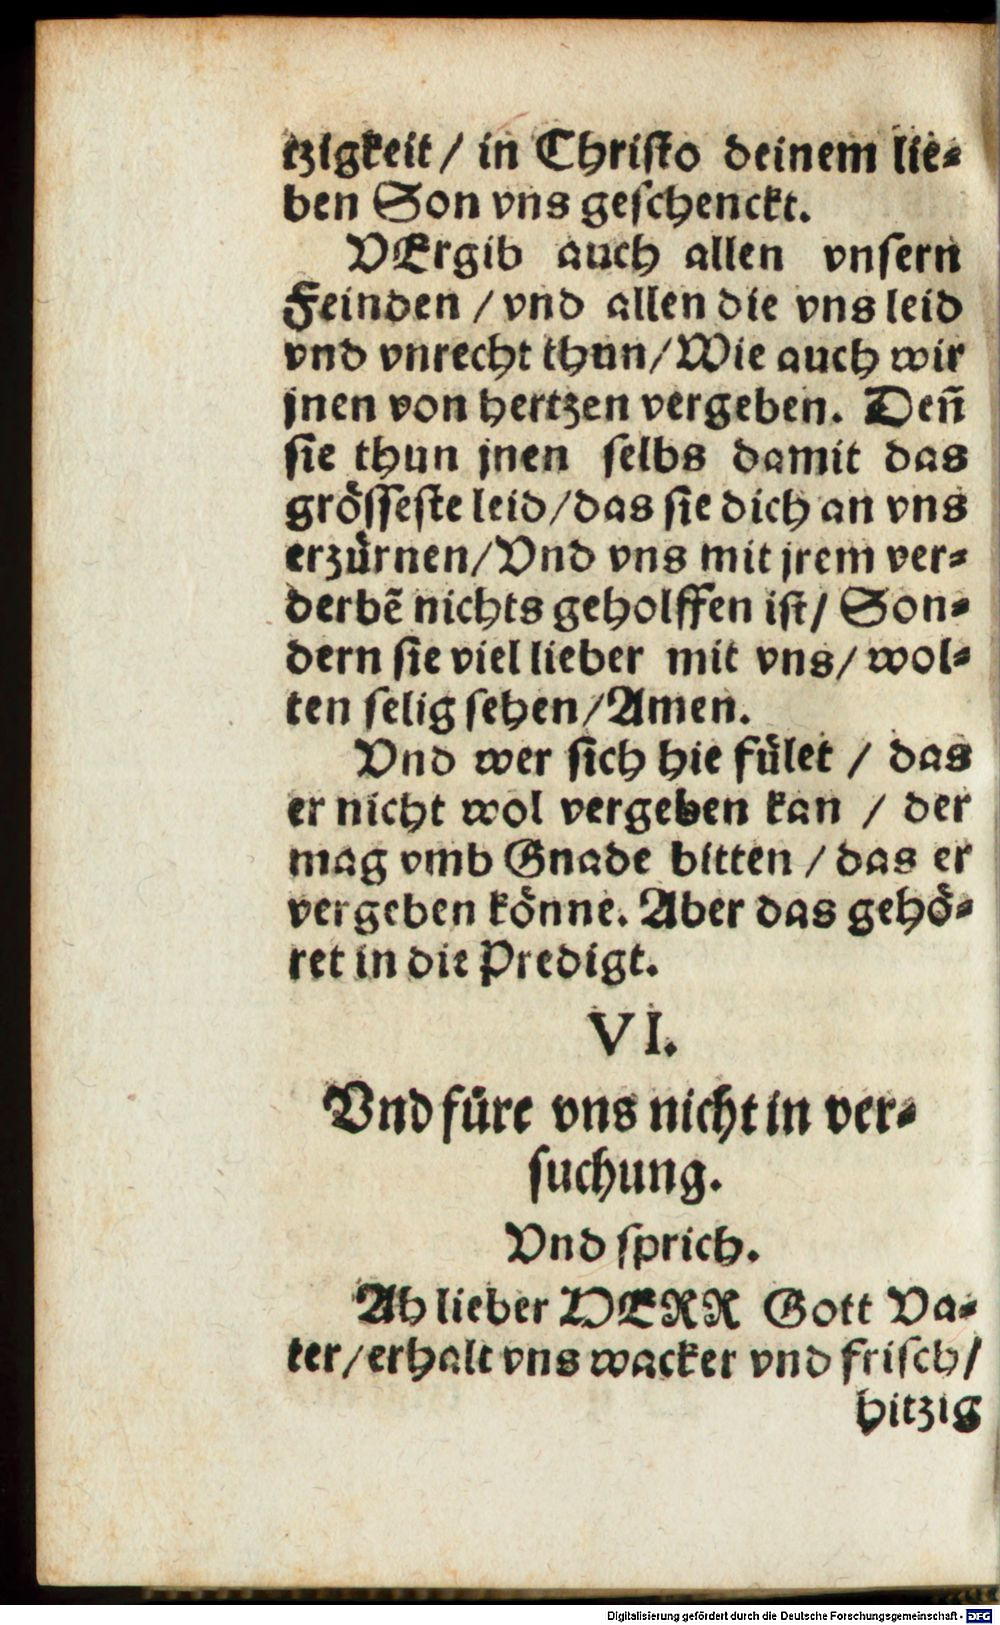 tzigkeit / in Christo deinem lie-
ben Son vns geschenckt.
VErgib auch allen vnsern
Feinden / vnd allen die vns leid
vnd vnrecht thun / Wie auch wir
jnen von hertzen vergeben. Deñ
sie thun jnen selbs damit das
grösseste leid / das sie dich an vns
erzürnen / Vnd vns mit jrem ver-
derbẽ nichts geholffen ist / Son-
dern sie viel lieber mit vns / wol-
ten selig sehen / Amen.
Vnd wer sich hie fület / das
er nicht wol vergeben kan / der
mag vmb Gnade bitten / das er
vergeben könne. Aber das gehö-
ret in die Predigt.
VI.
Vnd füre vns nicht in ver-
suchung.
Vnd sprich.
Ah lieber HERR Gott Va-
ter / erhalt vns wacker vnd frisch /
hitzig
Digitalisierung gefördert durch die Deutsche Forschungsgemeinschaft - DFG